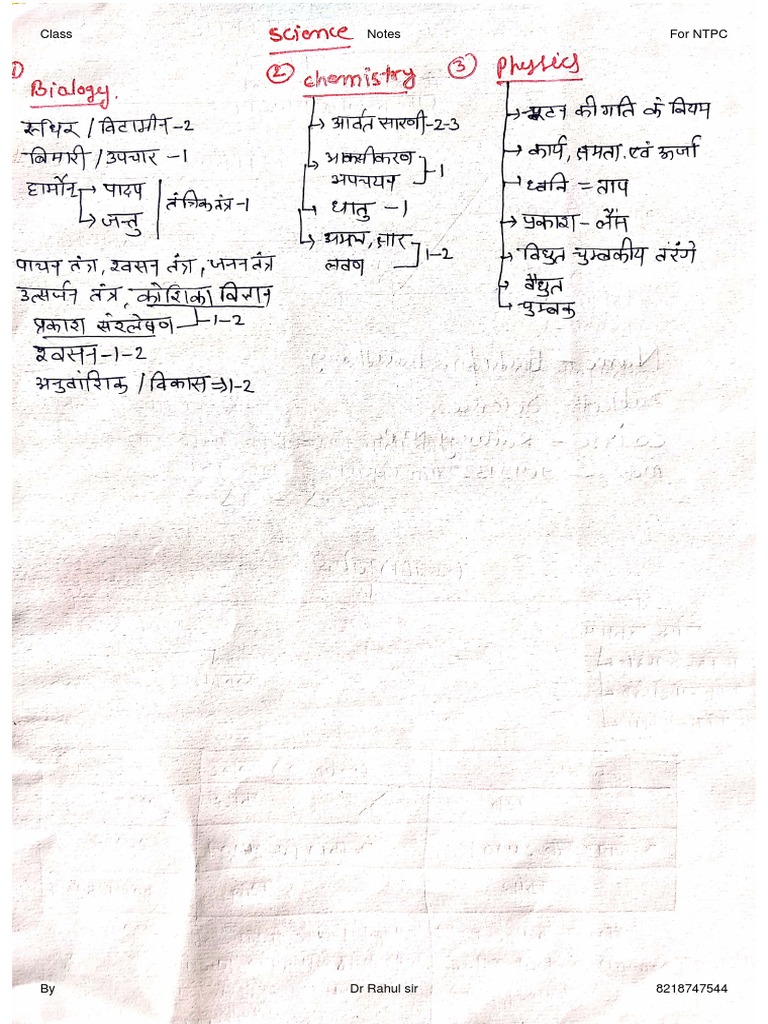 Class Science Notes For NTPC
1) Biology.
रूधिर / विटामीन-2
बिमारी / उपचार -1
हार्मोन → पादप
→ जन्तु
तंत्रिक तंत्र-1
पाचन तंत्र, श्वसन तंत्र, जनन तंत्र
उत्सर्जन तंत्र, कोशिका विज्ञान
प्रकाश संश्लेषण -1-2
श्वसन-1-2
अनुवांशिक / विकास ⇒ 1-2
② Chemistry
→ आर्वत सारणी-2-3
→ आक्सीकरण
अपचयन -1
→ धातु -1
→ अम्ल, क्षार
लवण 1-2
③ Physics
→ न्यूटन की गति के नियम
→ कार्य, क्षमता. एवं ऊर्जा
→ ध्वनि = ताप
→ प्रकाश - लैंस
→ विधुत चुम्बकीय तरंगे
→ वैधुत
→ चुम्बक
By Dr Rahul sir 8218747544